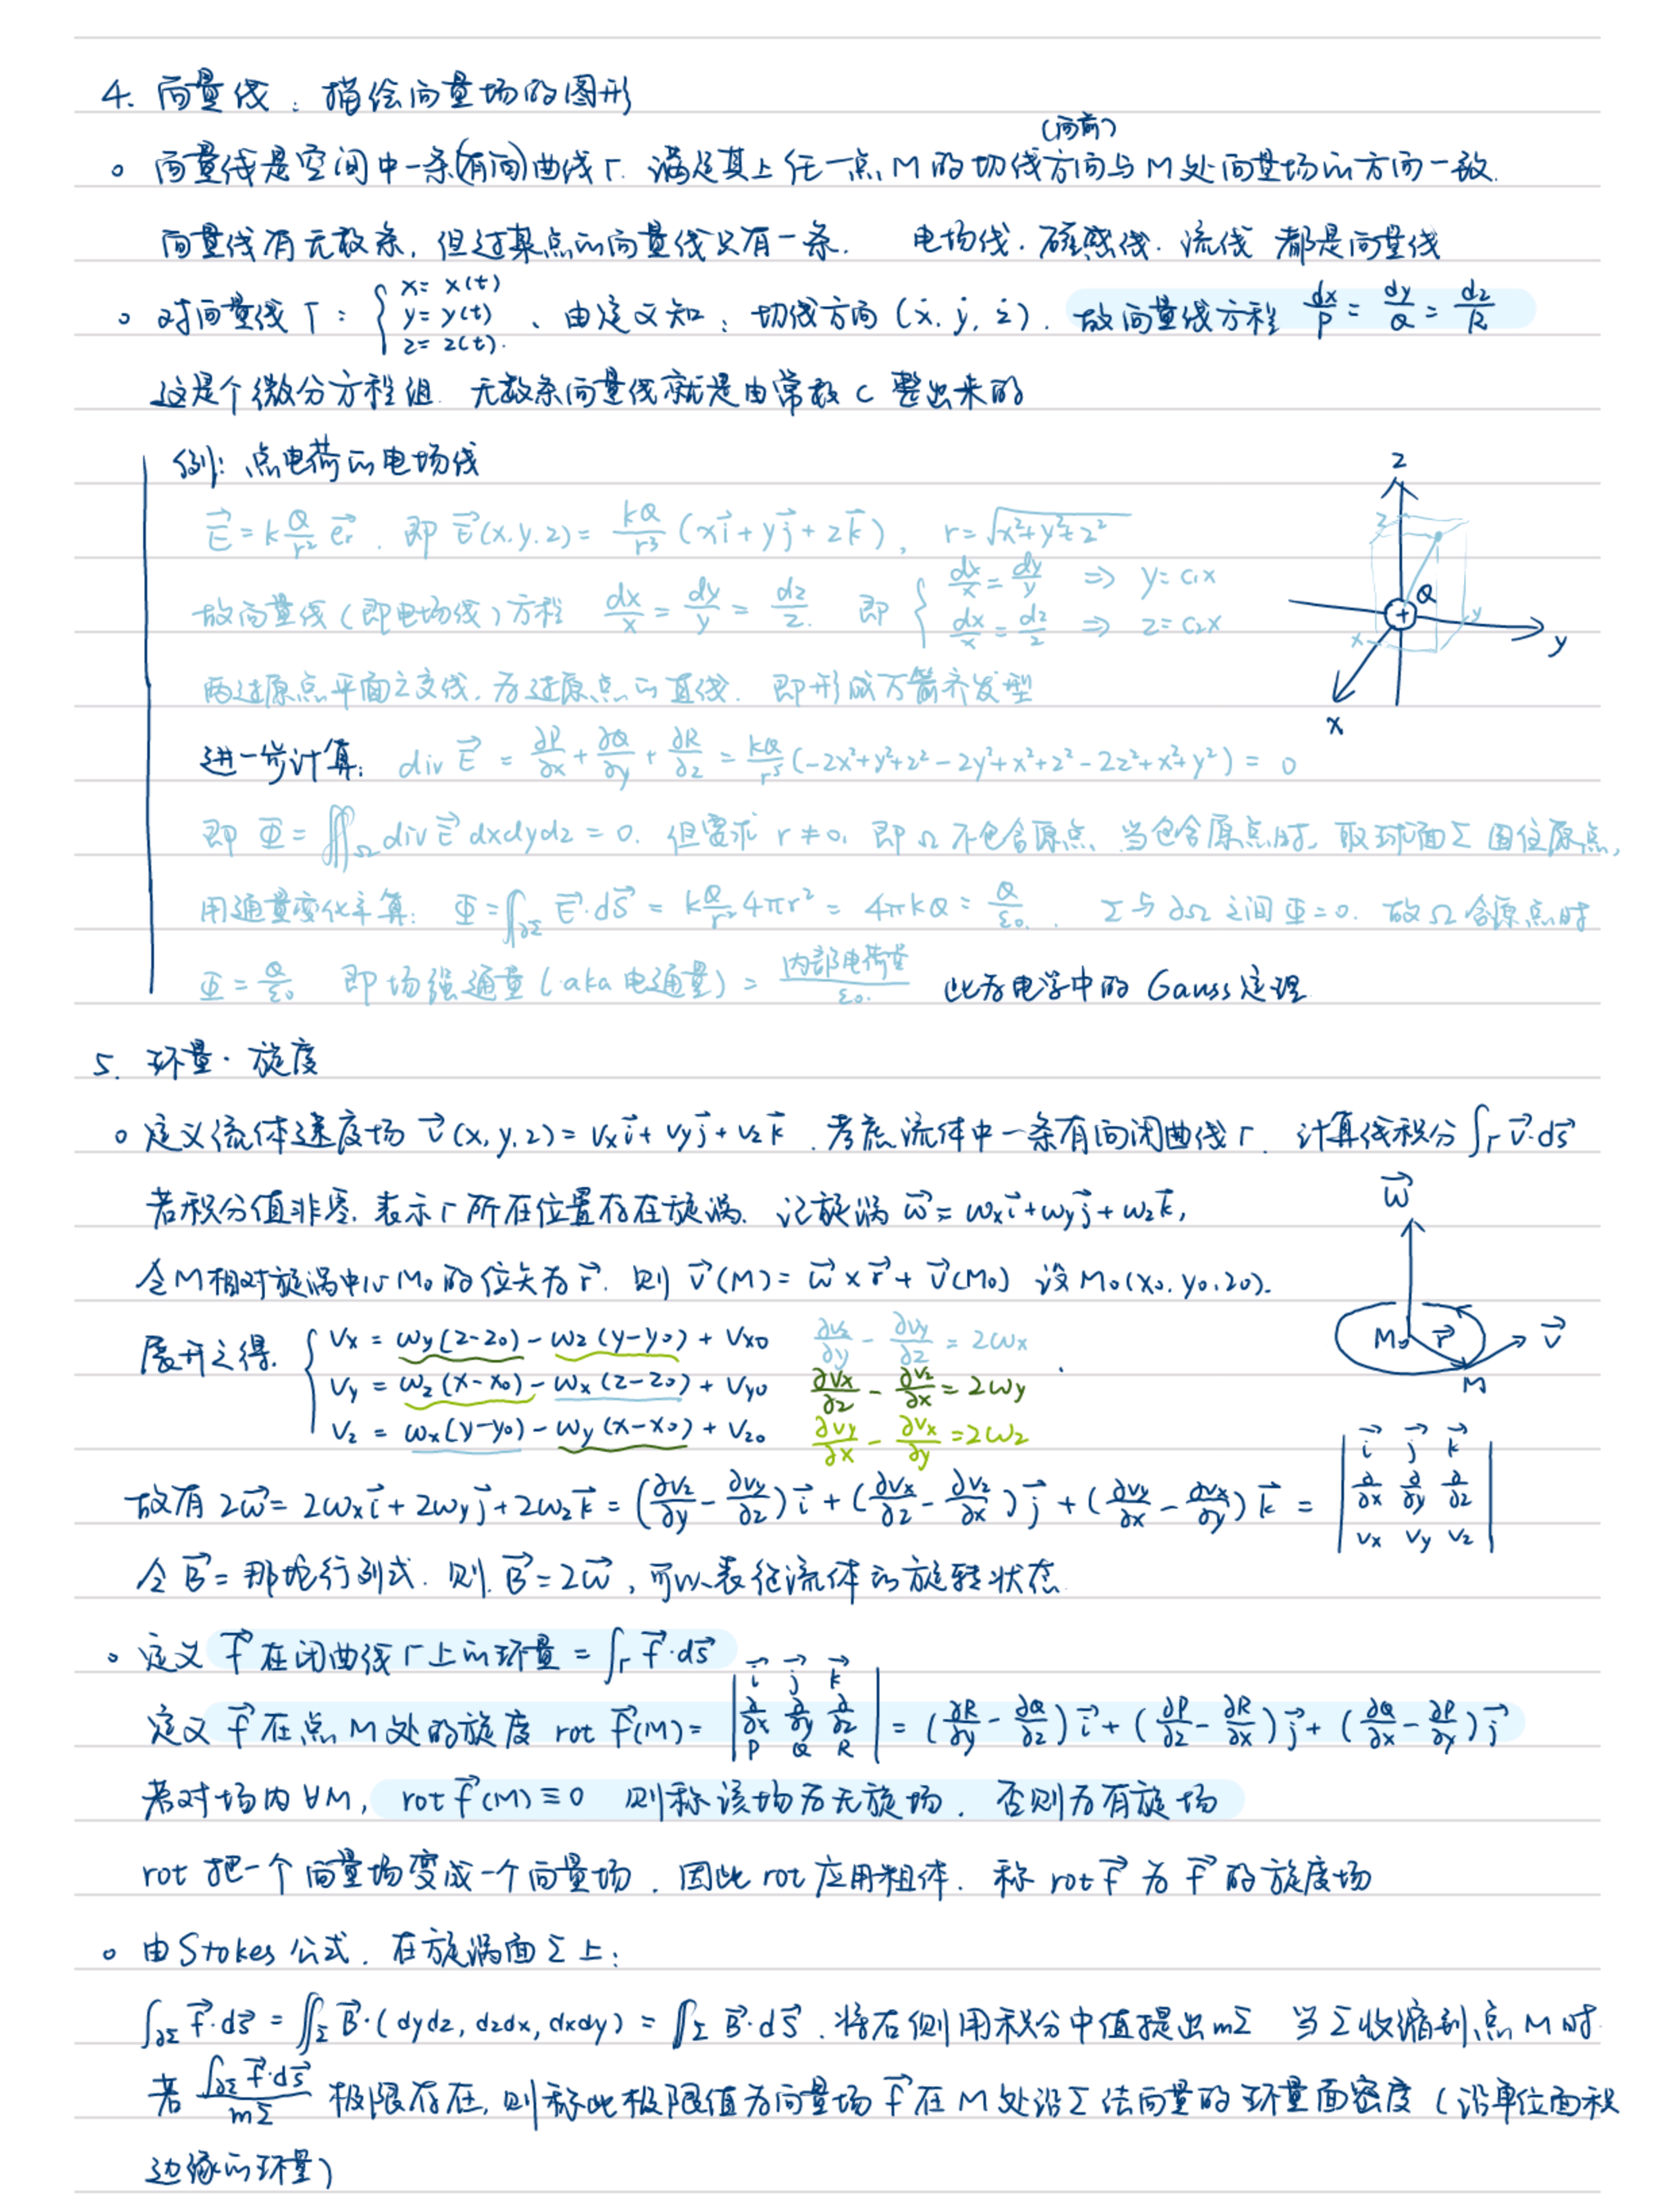 4. 向量线：描绘向量场的图形
(向前)
○ 向量线是空间中一条(有向)曲线Γ. 满足其上任一点M的切线方向与M处向量场的方向一致.
向量线有无数条, 但过某点的向量线只有一条. 电场线. 磁感线. 流线 都是向量线
○ 对向量线Γ: { x= x(t) y= y(t) z= z(t). 、由定义知：切线方向 (ẋ, ẏ, ż). 故向量线方程 dx/P = dy/Q = dz/R
这是个微分方程组. 无数条向量线就是由常数 C 整出来的
例: 点电荷的电场线
E⃗ = k Q/r² e⃗r. 即 E⃗(x.y.z) = kQ/r³ (xi⃗ + yj⃗ + zk⃗), r=√(x²+y²+z²)
故向量线(即电场线)方程 dx/x = dy/y = dz/z. 即 { dx/x = dy/y ⇒ y=c₁x dx/x = dz/z ⇒ z=c₂x
两过原点平面之交线. 为过原点的直线. 即形成万箭齐发型
进一步计算: div E⃗ = ∂P/∂x + ∂Q/∂y + ∂R/∂z = kQ/r⁵ (-2x²+y²+z²-2y²+x²+z²-2z²+x²+y²) = 0
即 Φ = ∭Ω div E⃗ dxdydz = 0. 但要求 r ≠ 0, 即 Ω 不包含原点. 当包含原点时, 取球面Σ 围住原点,
用通量变化率算: Φ = ∫∂Σ E⃗·dS⃗ = k Q/r² 4πr² = 4πkQ = Q/ε₀. Σ与∂Ω之间Φ=0. 故Ω含原点时
Φ = Q/ε₀ 即场强通量 (aka 电通量) = 内部电荷量/ε₀. 此为电学中的 Gauss 定理
z
z
Q
+
x
y
y
x
5. 环量·旋度
○ 定义流体速度场 v⃗(x,y,z) = vxi⃗ + vyj⃗ + vzk⃗. 考虑流体中一条有向闭曲线Γ. 计算线积分 ∫Γ v⃗·ds⃗
若积分值非零, 表示Γ所在位置存在旋涡. 记旋涡 ω⃗ = ωxi⃗+ωyj⃗+ωzk⃗,
令M相对旋涡中心M₀的位矢为r⃗. 则 v⃗(M) = ω⃗ × r⃗ + v⃗(M₀) 设M₀(x₀, y₀, z₀).
展开之得. { vx = ωy(z-z₀) - ωz(y-y₀) + vx0 ∂vz/∂y - ∂vy/∂z = 2ωx
vy = ωz(x-x₀) - ωx(z-z₀) + vy0 ∂vx/∂z - ∂vz/∂x = 2ωy
vz = ωx(y-y₀) - ωy(x-x₀) + vz0 ∂vy/∂x - ∂vx/∂y = 2ωz
ω⃗
M₀ r⃗ v⃗
M
故有 2ω⃗ = 2ωxi⃗ + 2ωyj⃗ + 2ωzk⃗ = (∂vz/∂y - ∂vy/∂z) i⃗ + (∂vx/∂z - ∂vz/∂x) j⃗ + (∂vy/∂x - ∂vx/∂y) k⃗ = | i⃗ j⃗ k⃗ ∂/∂x ∂/∂y ∂/∂z vx vy vz |
令 B⃗ = 那坨行列式. 则 B⃗ = 2ω⃗, 可以表征流体的旋转状态
○ 定义 f⃗ 在闭曲线Γ上的环量 = ∫Γ f⃗·ds⃗
定义 f⃗ 在点 M 处的旋度 rot f⃗(M) = | i⃗ j⃗ k⃗ ∂/∂x ∂/∂y ∂/∂z P Q R | = (∂R/∂y - ∂Q/∂z) i⃗ + (∂P/∂z - ∂R/∂x) j⃗ + (∂Q/∂x - ∂P/∂y) j⃗
若对场内 ∀M, rot f⃗(M) ≡ 0 则称该场为无旋场. 否则为有旋场
rot 把一个向量场变成一个向量场. 因此 rot 应用粗体. 称 rot f⃗ 为 f⃗ 的旋度场
○ 由Stokes公式. 在旋涡面Σ上:
∫∂Σ f⃗·ds⃗ = ∬Σ B⃗·(dydz, dzdx, dxdy) = ∬Σ B⃗·dS⃗. 将右侧用积分中值提出mΣ 当Σ收缩到点M时.
若 ∫∂Σ f⃗·ds⃗/mΣ 极限存在, 则称此极限值为向量场 f⃗ 在 M 处沿Σ法向量的环量面密度 (沿单位面积
边缘的环量)